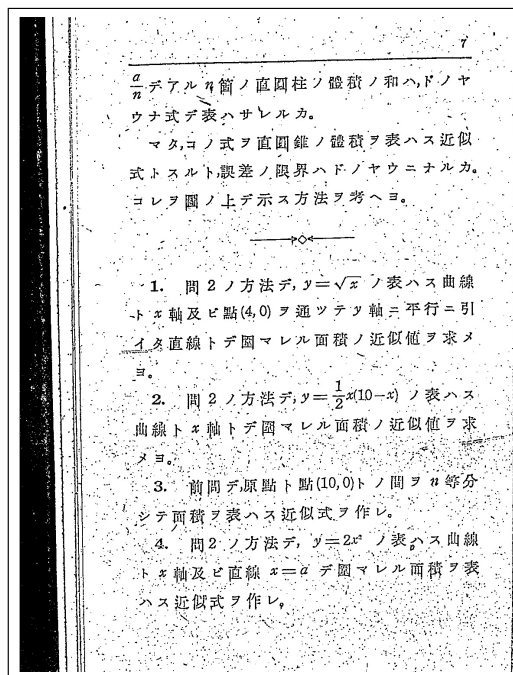 7
a/n デアル n 箇ノ直圓柱ノ體積ノ和ハ,ドノヤ
ウナ式デ表ハサレルカ。
マタ,コノ式ヲ直圓錐ノ體積ヲ表ハス近似
式トスルト,誤差ノ限界ハドノヤウニナルカ。
コレヲ圖ノ上デ示ス方法ヲ考ヘヨ。
1. 問2ノ方法デ, y=√x ノ表ハス曲線
ト x 軸及ビ點(4,0) ヲ通ツテ y 軸ニ平行ニ引
イタ直線トデ圍マレル面積ノ近似値ヲ求メ
ヨ。
2. 問2ノ方法デ, y=1/2x(10−x) ノ表ハス
曲線ト x 軸トデ圍マレル面積ノ近似値ヲ求
メヨ。
3. 前問デ,原點ト點(10,0)トノ間ヲ n 等分
シテ面積ヲ表ハス近似式ヲ作レ。
4. 問2ノ方法デ, y=2x² ノ表ハス曲線
ト x 軸及ビ直線 x=a デ圍マレル面積ヲ表
ハス近似式ヲ作レ。